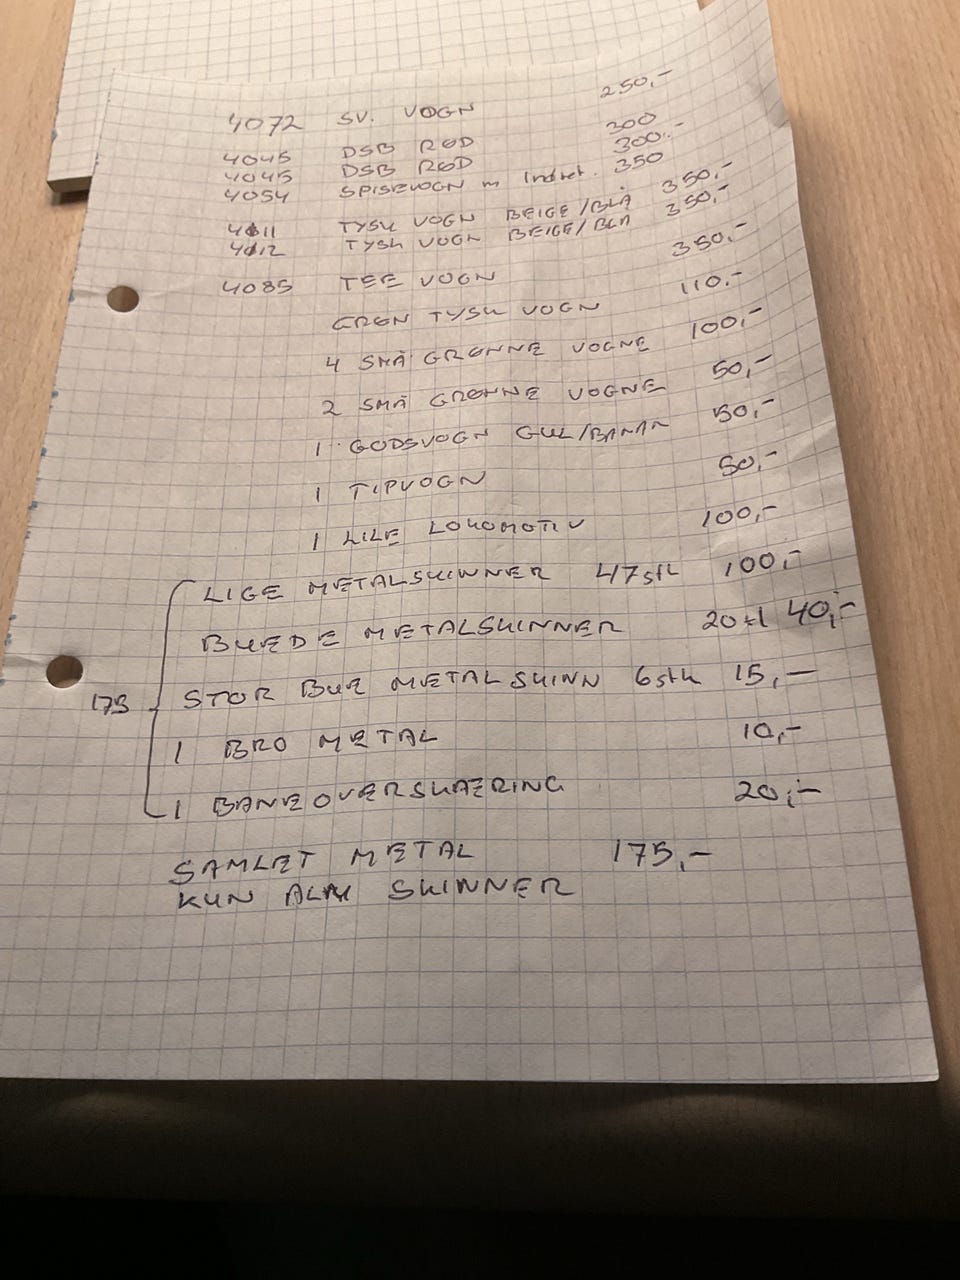 4072 SV. VOGN 250,-
4045 DSB RØD 300
4045 DSB RØD 300.-
4054 SPISEVOGN m Indret. 350
4011 TYSK VOGN BEIGE/BLÅ 350,-
4012 TYSK VOGN BEIGE/BLÅ 350,-
4085 TEE VOGN 350,-
GRØN TYSK VOGN 110.-
4 SMÅ GRØNNE VOGNE 100,-
2 SMÅ GRØNNE VOGNE 50,-
1 GODSVOGN GUL/BANAN 50,-
1 TIPVOGN 50,-
1 LILE LOKOMOTIV 100,-
LIGE METALSKINNER 47 stk 100,-
BUEDE METALSKINNER 20 st 40,-
175 STOR BUE METALSKINN 6 stk 15,-
1 BRO METAL 10,-
1 BANEOVERSKÆRING 20,-
SAMLET METAL 175,-
KUN SKINNER